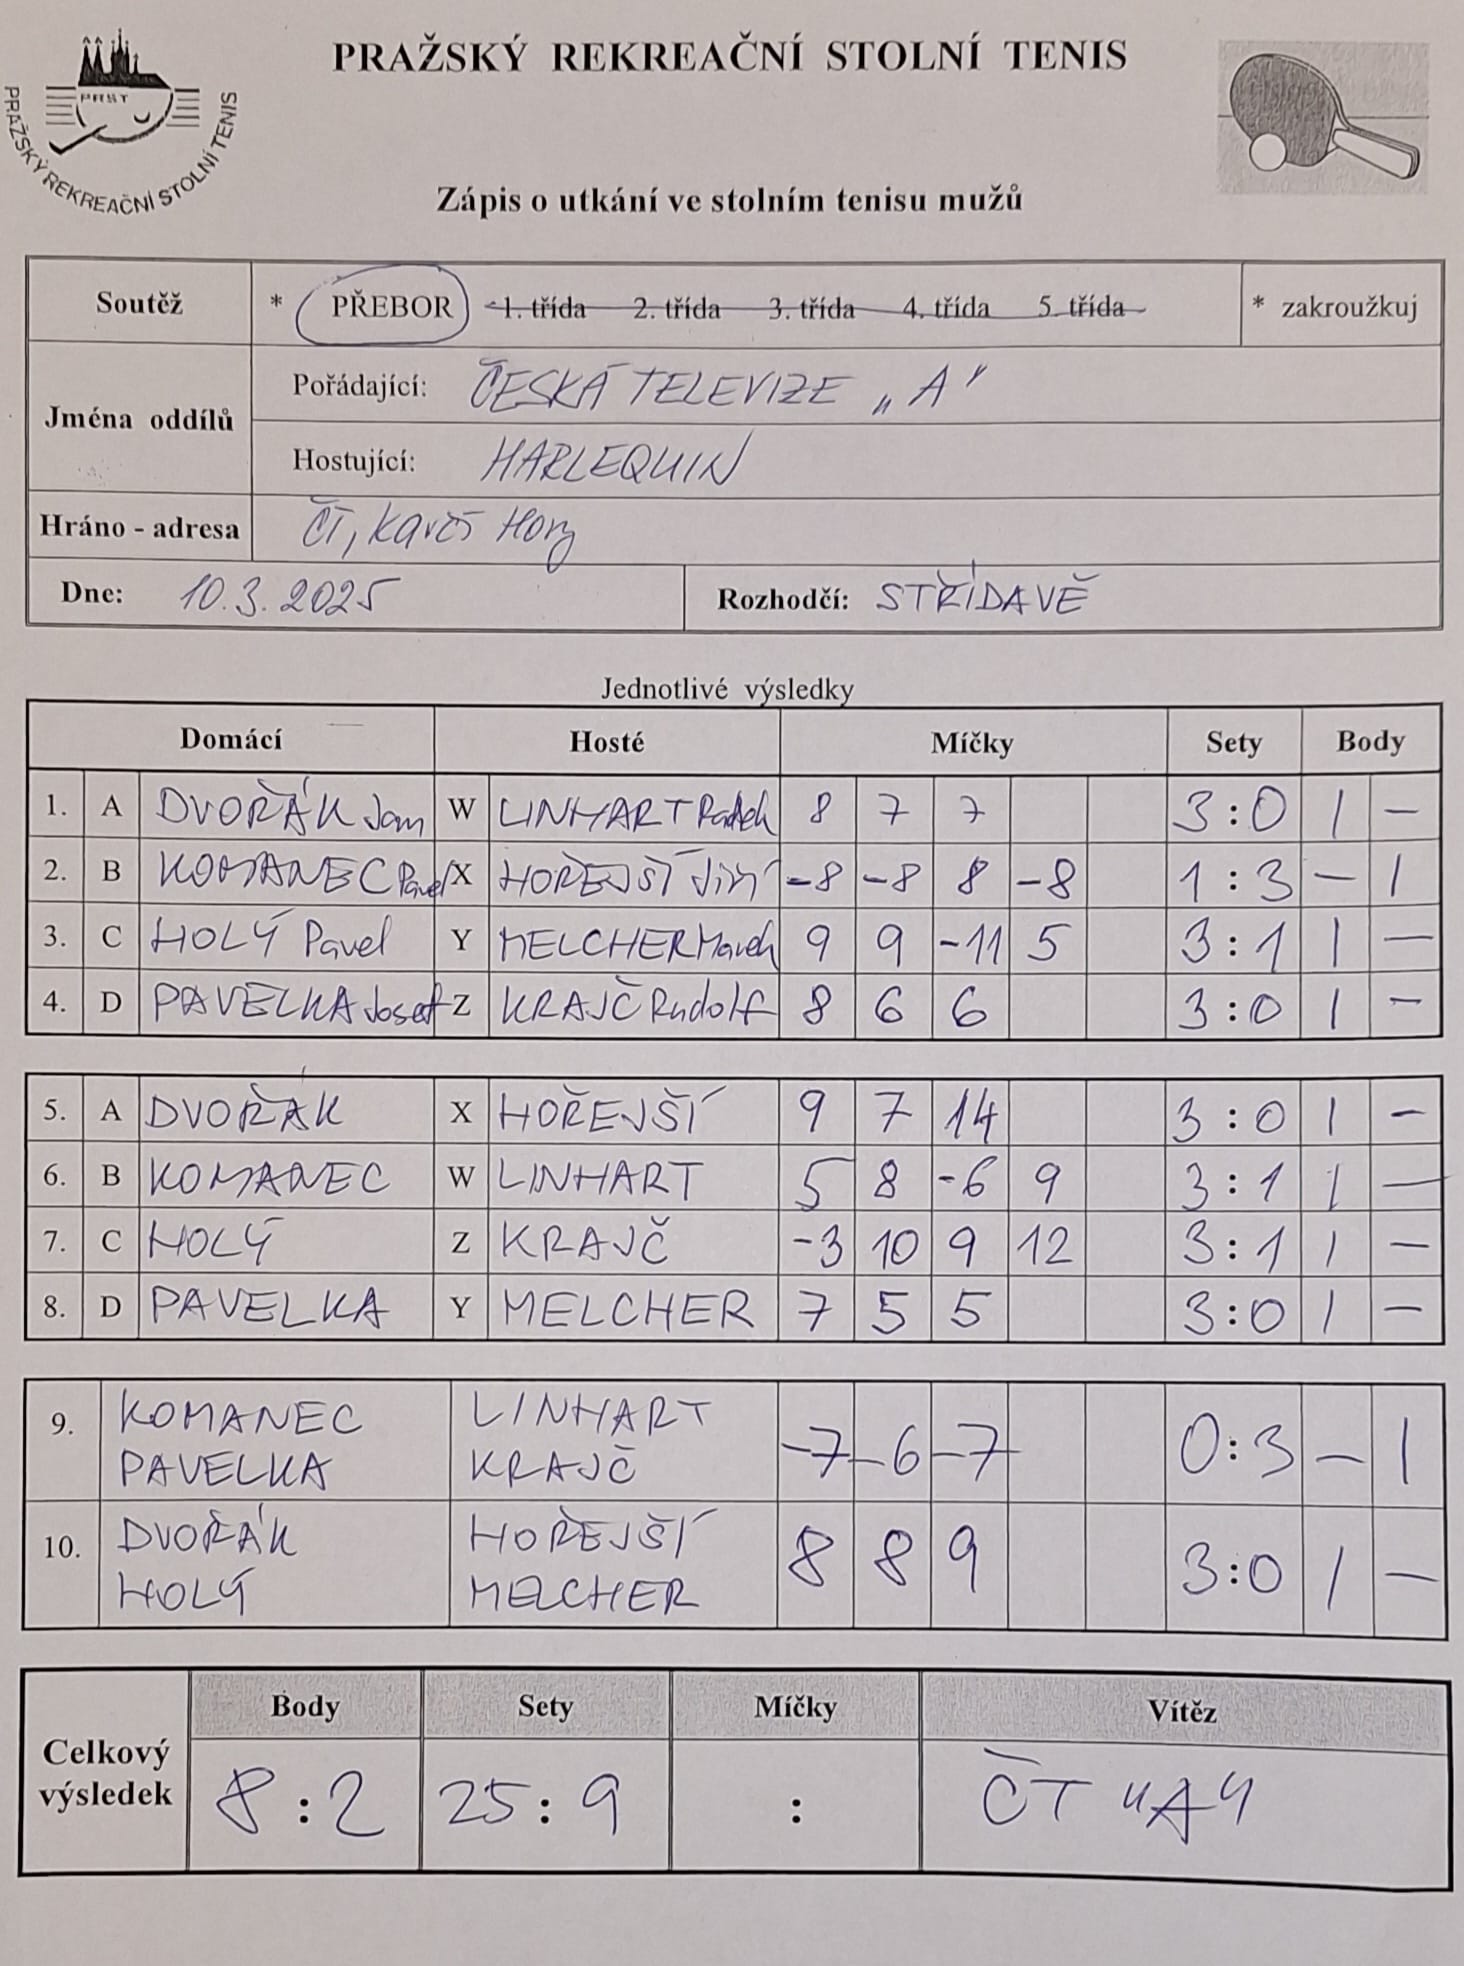 PRAŽSKÝ REKREAČNÍ STOLNÍ TENIS
PRST
PRAŽSKÝ REKREAČNÍ STOLNÍ TENIS
Zápis o utkání ve stolním tenisu mužů
Soutěž * PŘEBOR 1. třída 2. třída 3. třída 4. třída 5. třída * zakroužkuj
Jména oddílů
Pořádající: ČESKÁ TELEVIZE „A"
Hostující: HARLEQUIN
Hráno - adresa ČT, Kavčí Hory
Dne: 10.3.2025 Rozhodčí: STŘÍDAVĚ
Jednotlivé výsledky
Domácí Hosté Míčky Sety Body
1. A DVOŘÁK Jan W LINHART Radek 8 7 7 3:0 1 –
2. B KOMANEC Pavel X HOŘEJŠÍ Jiří -8 -8 8 -8 1:3 – 1
3. C HOLÝ Pavel Y MELCHER Marek 9 9 -11 5 3:1 1 –
4. D PAVELKA Josef Z KRAJČ Rudolf 8 6 6 3:0 1 –
5. A DVOŘÁK X HOŘEJŠÍ 9 7 14 3:0 1 –
6. B KOMANEC W LINHART 5 8 -6 9 3:1 1 –
7. C HOLÝ Z KRAJČ -3 10 9 12 3:1 1 –
8. D PAVELKA Y MELCHER 7 5 5 3:0 1 –
KOMANEC LINHART
9. -7 -6 -7 0:3 – 1
PAVELKA KRAJČ
DVOŘÁK HOŘEJŠÍ
10. 8 8 9 3:0 1 –
HOLÝ MELCHER
Body Sety Míčky Vítěz
Celkový výsledek 8:2 25:9 : ČT "A"